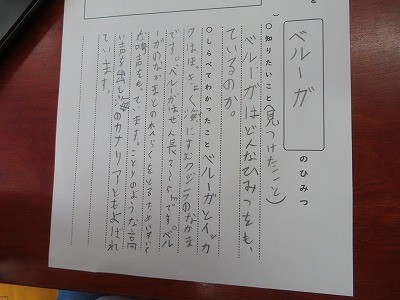 ベルーガ のひみつ
○知りたいこと(見つけたこと)
ベルーガはどんなひみつをも、
ているのか。
○しらべてわかったこと ベルーガとイッカ
クはほっきょく海にすむクジラのなかま
です。ベルーガはぜん長 mです。ベル
ーガのなかまとのれんらくをとるため
な鳴声をもっています。ことりのような高
い声を出し海のカナリアともよばれ
ています。